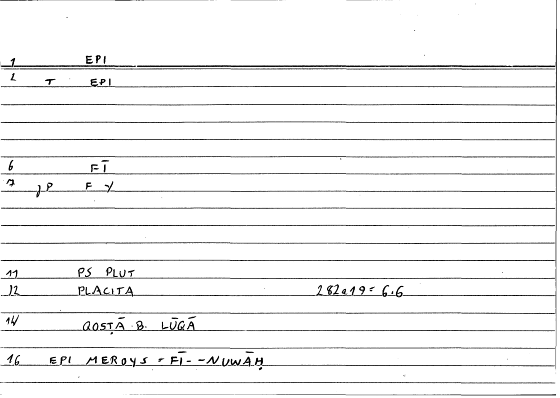 1 EPI
2 T EPI
6 FĪ
7 JP F Y
11 PS PLUT
12 PLACITA 282a19 = 6.6
14 QOSṬĀ B. LŪQĀ
16 EPI MEROYS = FĪ - - NUWĀḤ